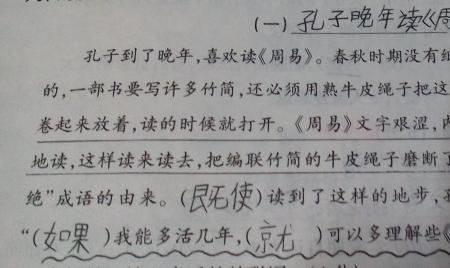 (一) 孔子晚年读《周
孔子到了晚年,喜欢读《周易》。春秋时期没有纸
的,一部书要写许多竹简,还必须用熟牛皮绳子把这
卷起来放着,读的时候就打开。《周易》文字艰涩,内
地读,这样读来读去,把编联竹简的牛皮绳子磨断了
绝”成语的由来。(即使)读到了这样的地步,孔
“(如果 )我能多活几年,(就 )可以多理解些《